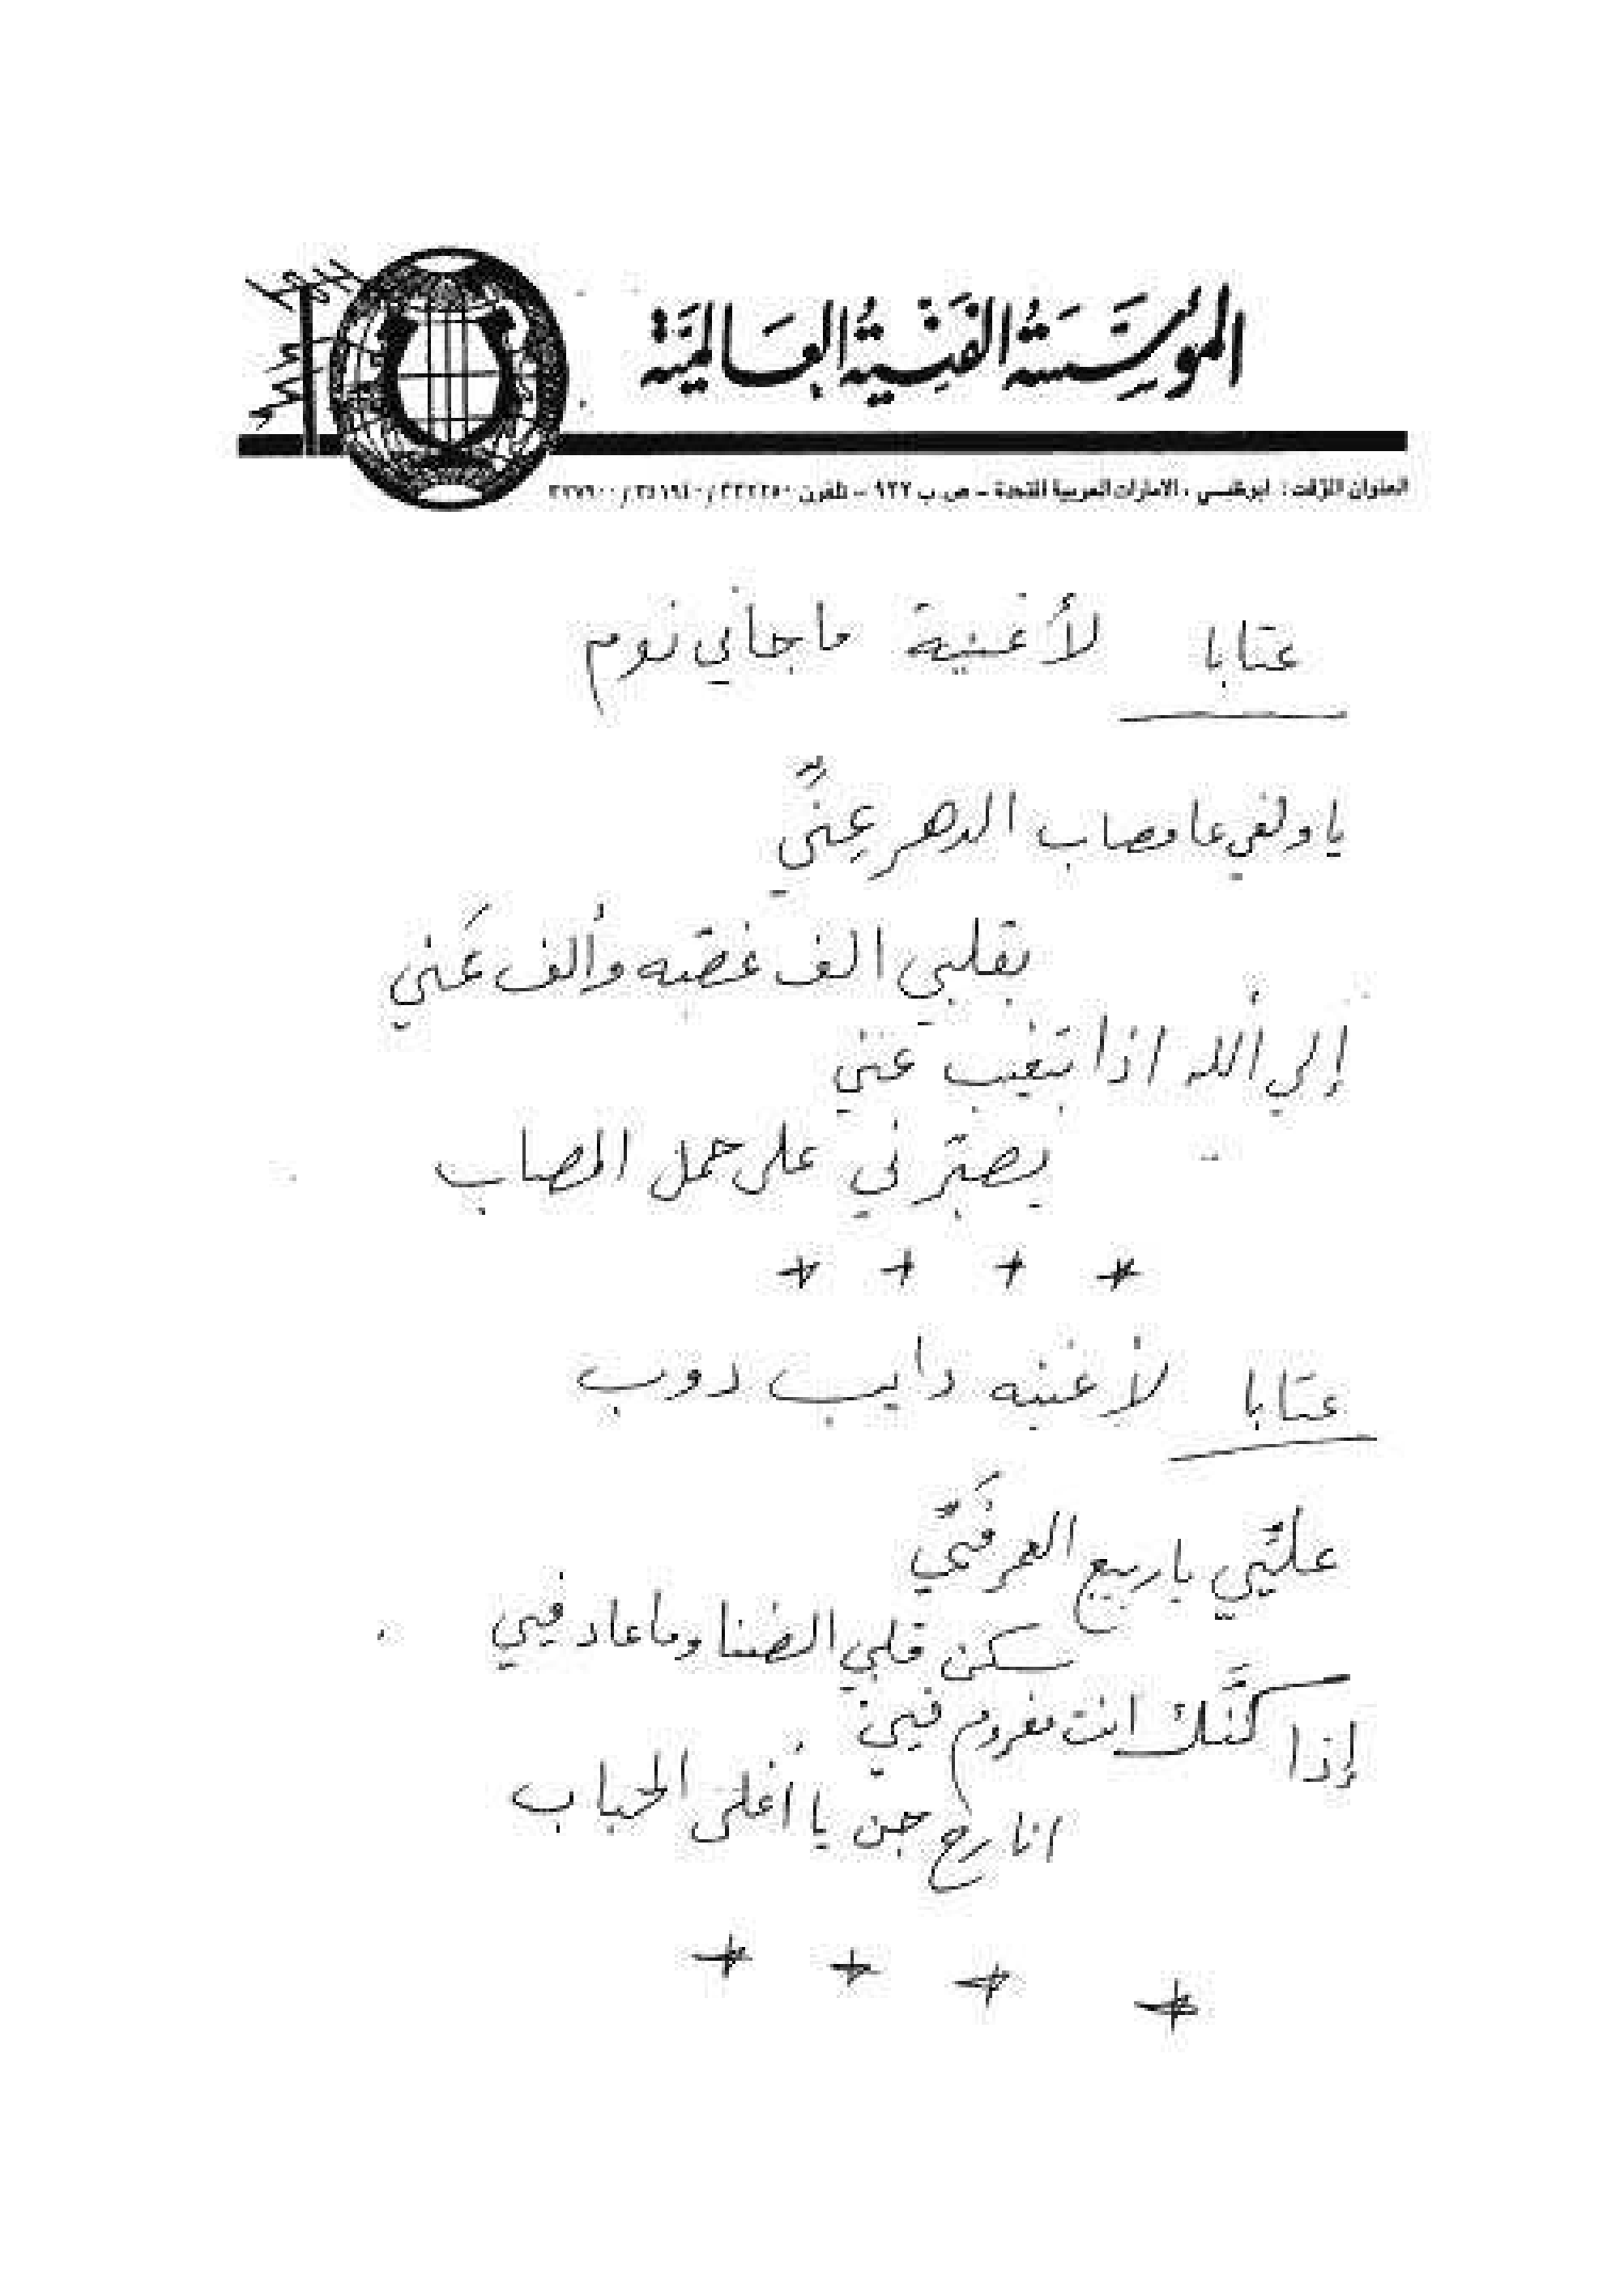 المؤسَّسَةُ الفَنِّيةُ العَالَميَّة
العنوان المؤقت: ابوظبي، الامارات العربية المتحدة - ص.ب ٩٢٢ - تلفون
عتابا لأغنية ما جاني نوم
يا ولفي عا مصاب الدهر عِنِّي
بقلبي الف غصّه وألف عَني
إلي ألله اذا بتغيب عني
يصبّرني على حمل المصاب
عتابا لأغنيه دايب دوب
عليّي يا ربيع العمر فَيّي
سكن قلبي الضنا وما عاد فيي
إذا كنَّك انت مغروم فيي
انا رح جن يا أغلى الحباب